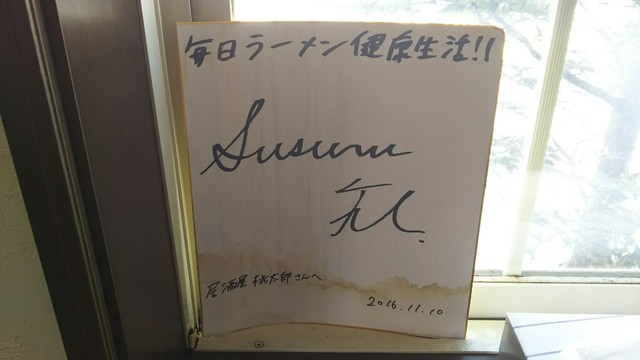 毎日ラーメン健康生活!!
Susuru
居酒屋 桃太郎さんへ
2016.11.10